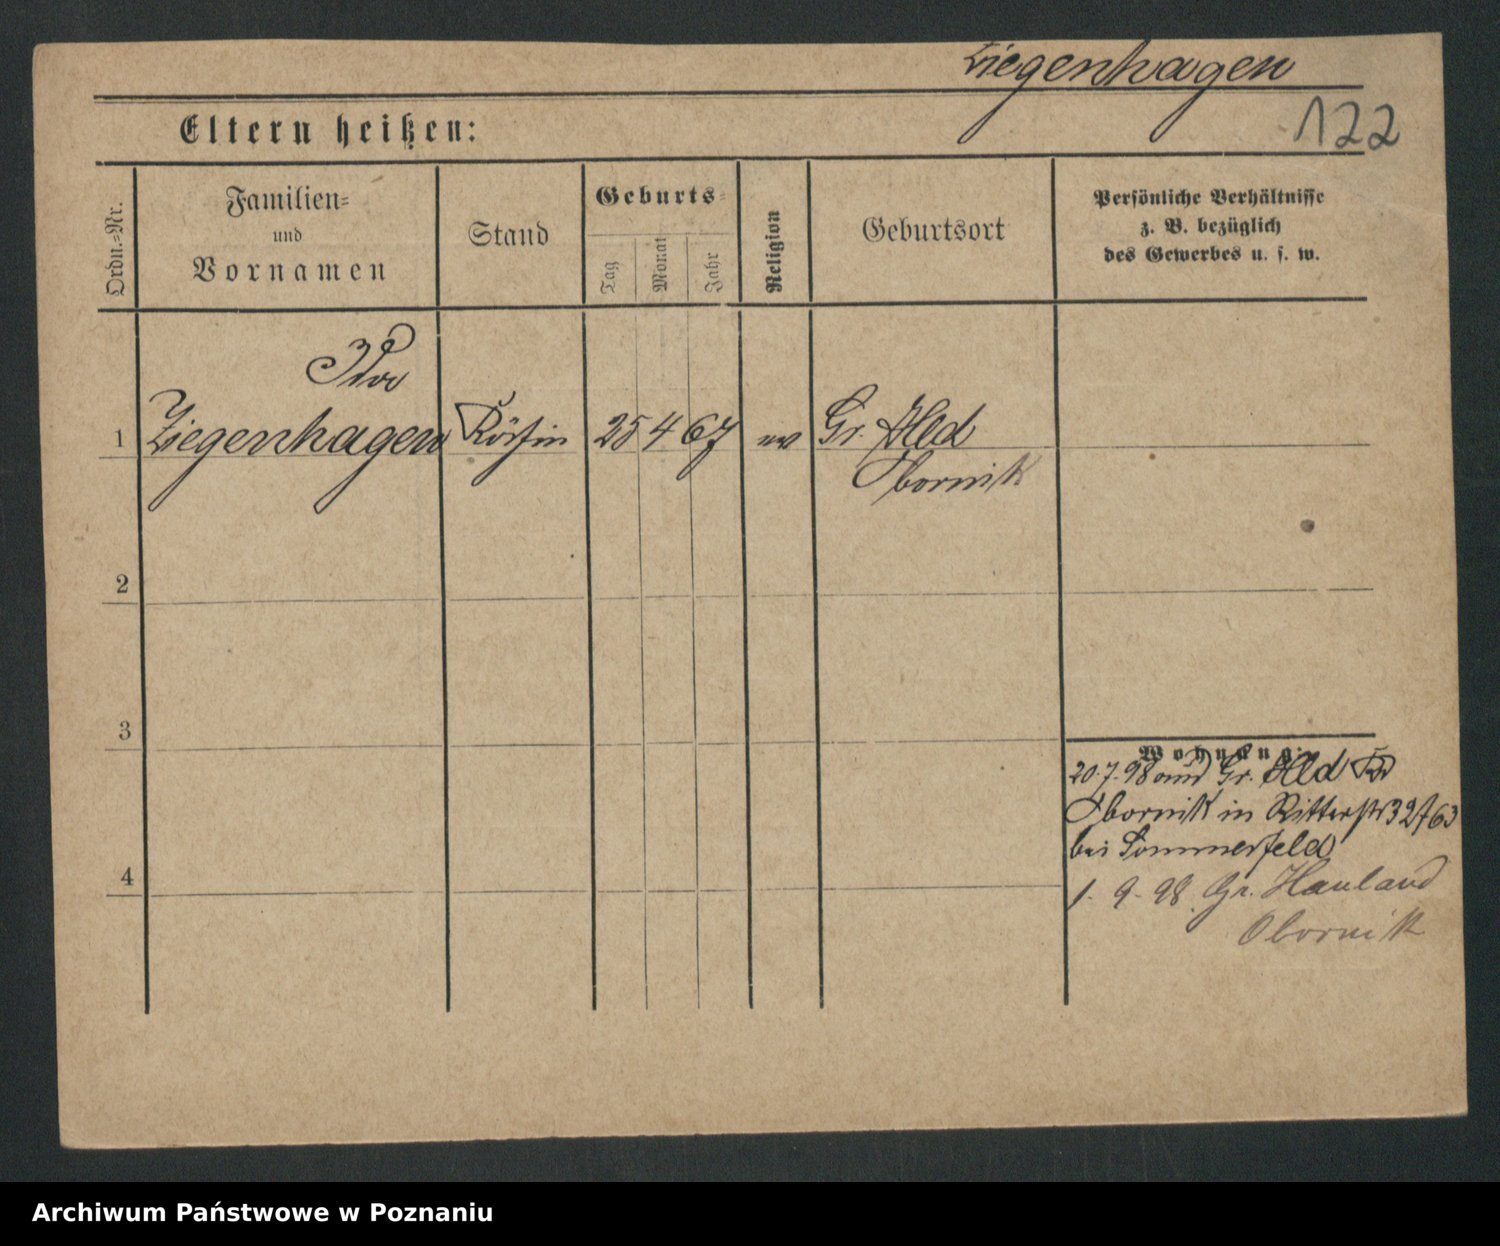 Ziegenhagen
122
Eltern heißen:
Ordn.=Nr.
Familien=
und
Vornamen
Stand
Geburts=
Tag
Monat
Jahr
Religion
Geburtsort
Persönliche Verhältnisse
z. B. bezüglich
des Gewerbes u. s. w.
Ida
1 Ziegenhagen Köchin 25 4 67 ev Gr. Hld
Obornik
2
3
4
Wohnung:
20.7.98 aus Gr. Hld Krs
Obornik in Ritterstr 32763
bei Sommerfeld
1. 9. 98. Gr. Hauland
Obornik
Archiwum Państwowe w Poznaniu